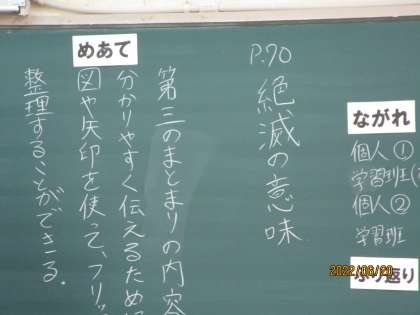 P.70 絶滅の意味
めあて
第三のまとまりの内容
分かりやすく伝えるため
図や矢印を使って、フリッ
整理することができる。
ながれ
個人①
学習班
個人②
学習班
ふり返り
2022/06/20